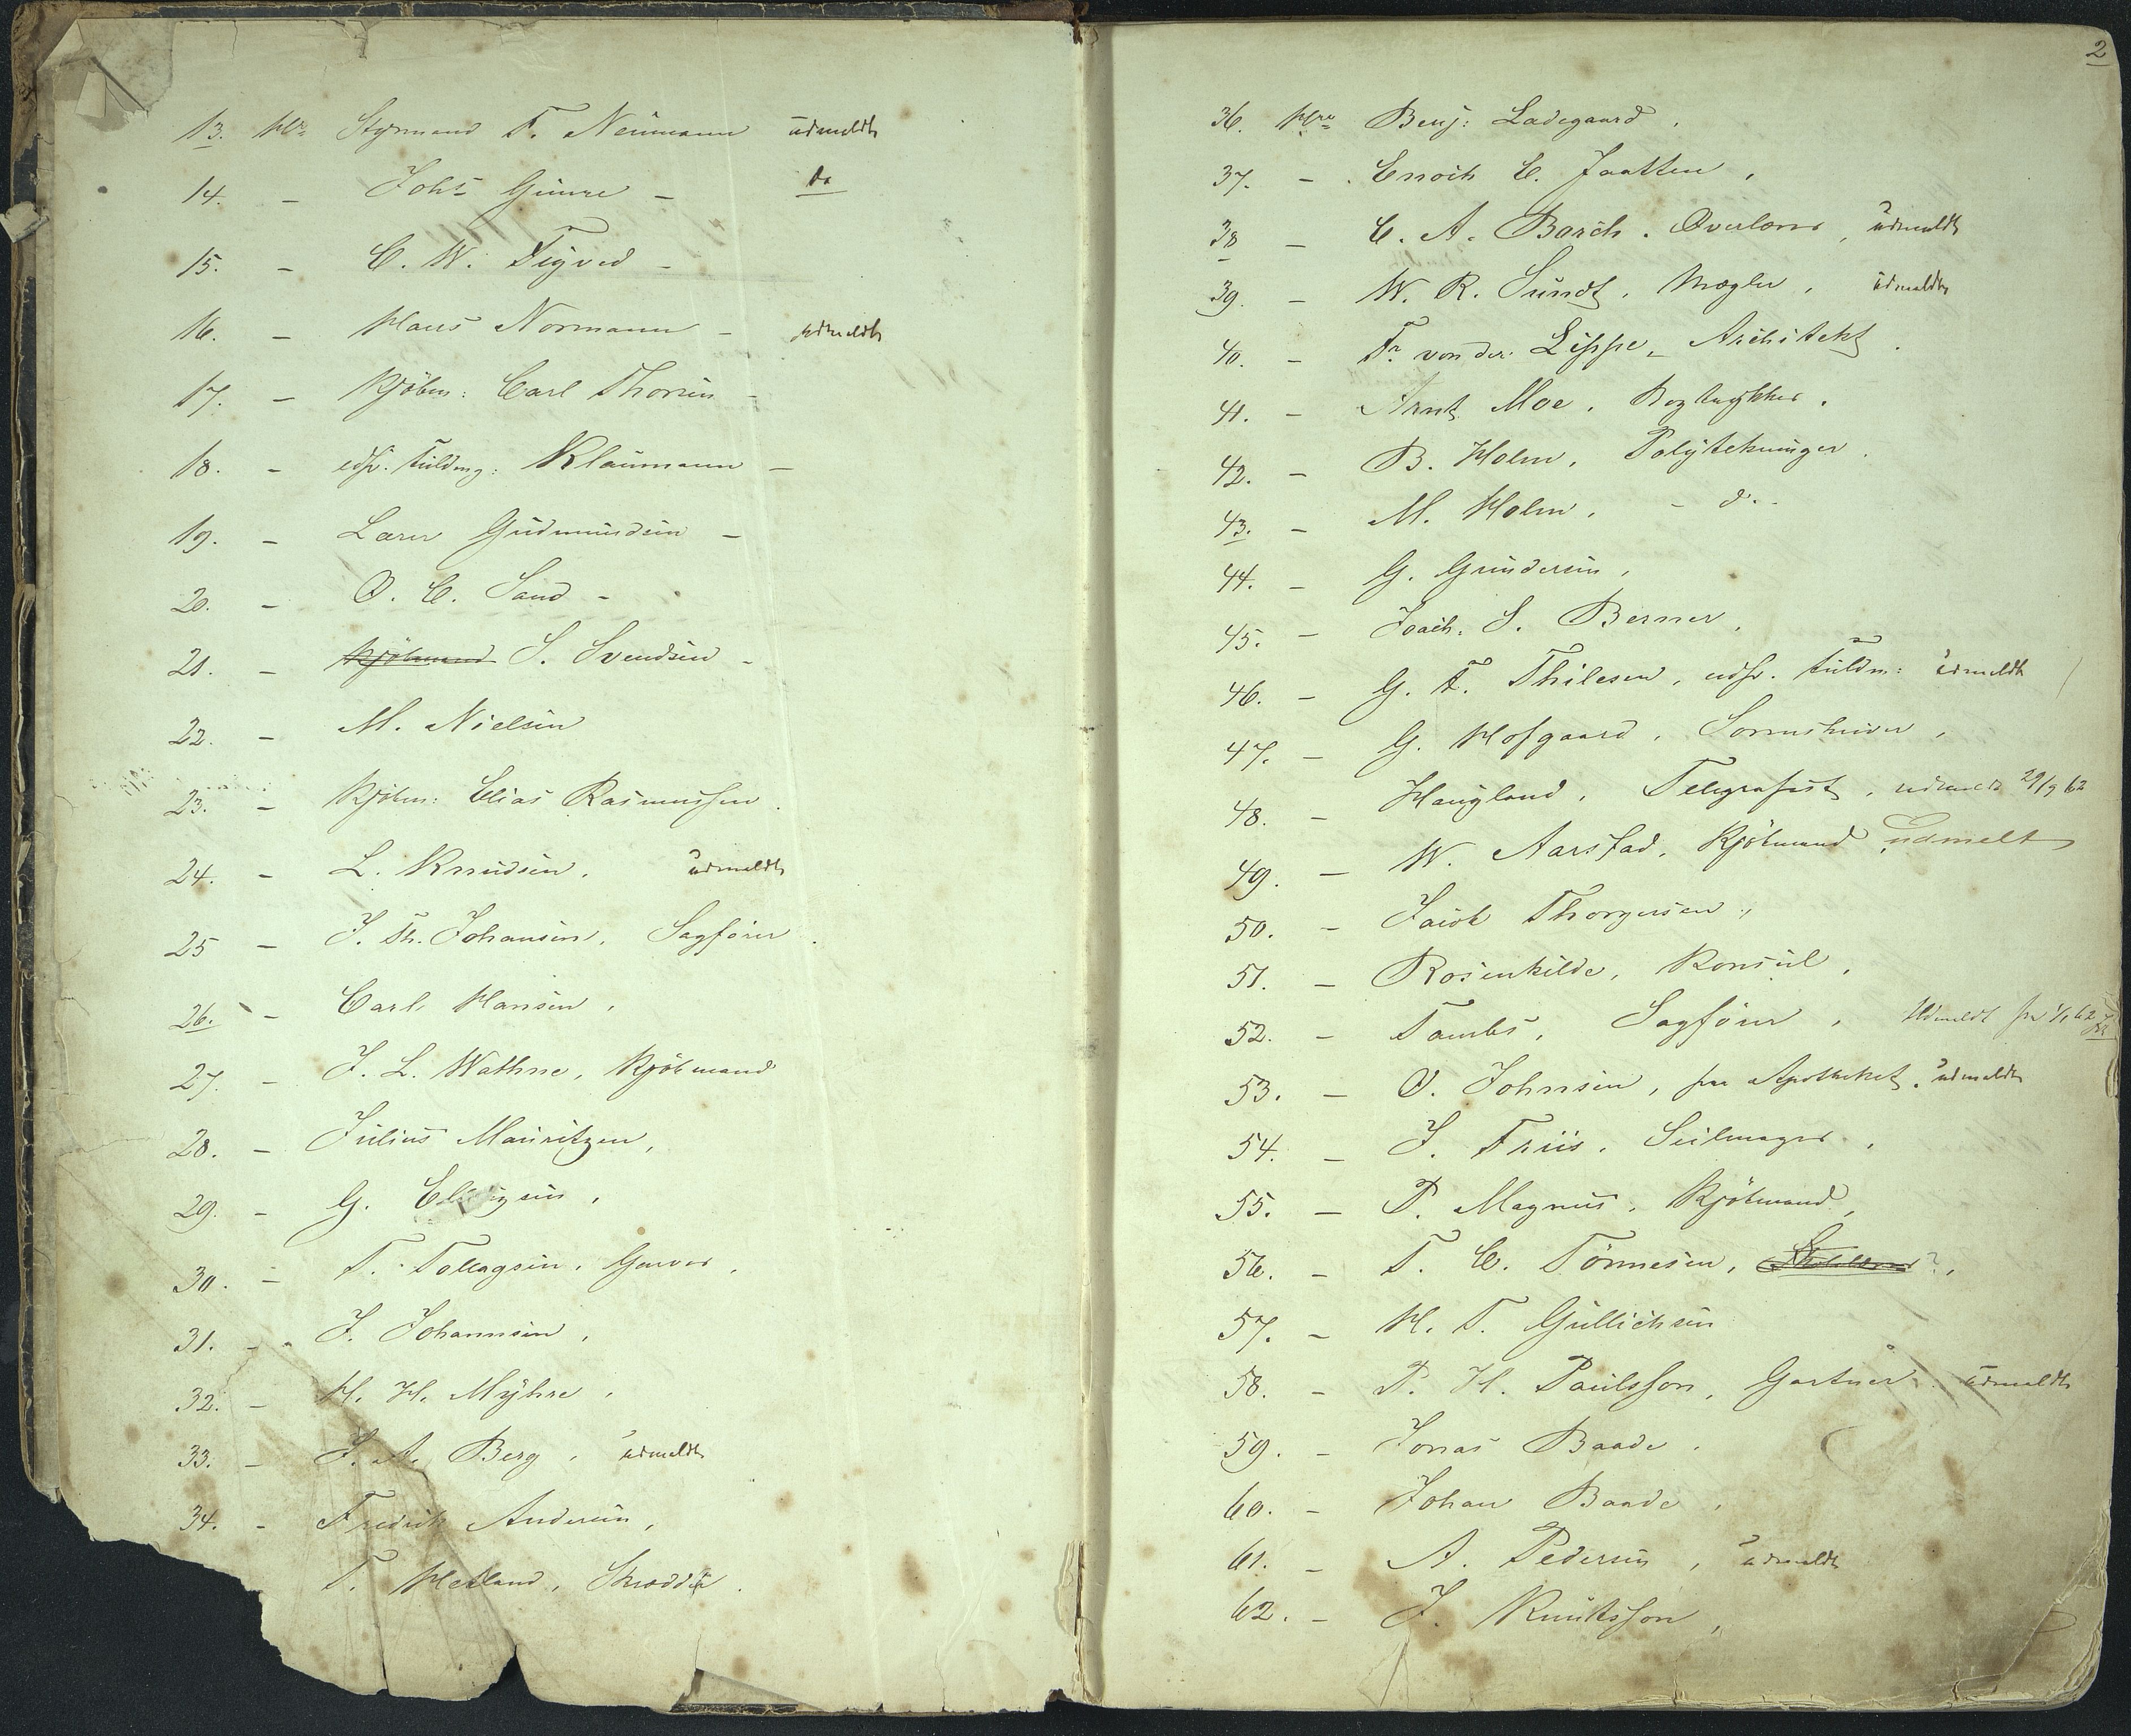 13. Hr. Styrmand T. Neumann udmeldt
14. - Johs Gunre - do
15. - C. W. Tigved -
16. - Hans Normann - udmeldt
17. - Kjöbm: Carl Thorsen -
18. - edsv. fuldmg: Klaumann -
19. - Lærer Gudmundsen -
20. - O. C. Sand -
21. - Kjöbmand S. Svendsen -
22. - M. Nielsen
23. - Kjöbm: Elias Rasmussen.
24. - L. Knudsen, udmeldt
25 - J. Th. Johansen, Sagförer.
26. - Carl Hansen,
27. - J. L. Wathne, Kjöbmand
28. - Julius Mauritzen,
29. - G. Ellingsen,
30. - T. Tollagsen, Garver,
31. - J. Johannsen,
32. - H. H. Myhre,
33. - J. A. Berg, udmeldt
34. - Fredrik Andersen,
T. Hetland, Skrædder.
2
36. Hrr Benj: Ladegaard,
37. - Enoch E. Jaatten,
38 - C. A. Barch. Overlærer, udmeldt
39. - W. R. Sundt, Mægler, udmeldt
40. - Fr. von der Lippe, Architekt.
41. - Arnt Moe, Bogtrykker.
42. - B. Holm, Polytekninger.
43. - M. Holm, - do -
44. - G. Gundersen,
45. - Joach. S. Berner,
46. - G. F. Thilesen, edsv. fuldm: udmeldt
47. - G. Hofgaard, Sorenskriver,
48. - Haugland, Telegrafist, udmeldt 29/9 62
49. - W. Aarstad, Kjöbmand udmelt
50. - Jacob Thorgersen,
51. - Rosenkilde, Konsul,
52. - Tambs, Sagförer, Udmeldt fra 1/1 62
53. - O. Johnsen, paa Apotheket, udmeldt
54. - J. Friis, Seilmager,
55. - P. Magnus, Kjöbmand,
56. - T. C. Tönnesen,
57. - H. T. Gullichsen
58. - P. H. Paulsson, Gartner, udmeldt
59. - Jonas Baade.
60. - Johan Baade,
61. - A. Pedersen, udmeldt
62. - J. Knutsson,